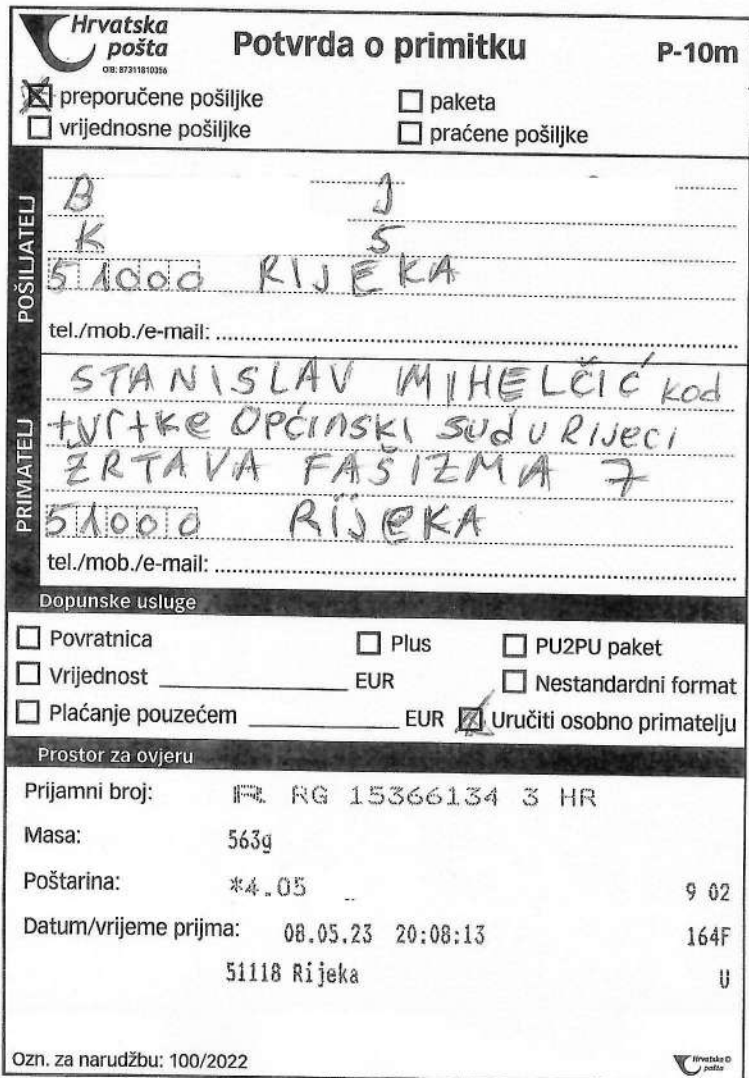 Hrvatska
pošta
OIB: 87311810356
Potvrda o primitku
P-10m
preporučene pošiljke
paketa
vrijednosne pošiljke
praćene pošiljke
POŠILJATELJ
B J
K 5
51000 RIJEKA
tel./mob./e-mail:
PRIMATELJ
STANISLAV MIHELČIĆ kod
tvrtke OPĆINSKI SUD U RIJECI
ŽRTAVA FAŠIZMA 7
51000 RIJEKA
tel./mob./e-mail:
Dopunske usluge
Povratnica
Plus
PU2PU paket
Vrijednost EUR
Nestandardni format
Plaćanje pouzećem EUR
Uručiti osobno primatelju
Prostor za ovjeru
Prijamni broj: R RG 15366134 3 HR
Masa: 563g
Poštarina: *4.05 9 02
Datum/vrijeme prijma: 08.05.23 20:08:13 164F
51118 Rijeka U
Ozn. za narudžbu: 100/2022
Hrvatska
pošta